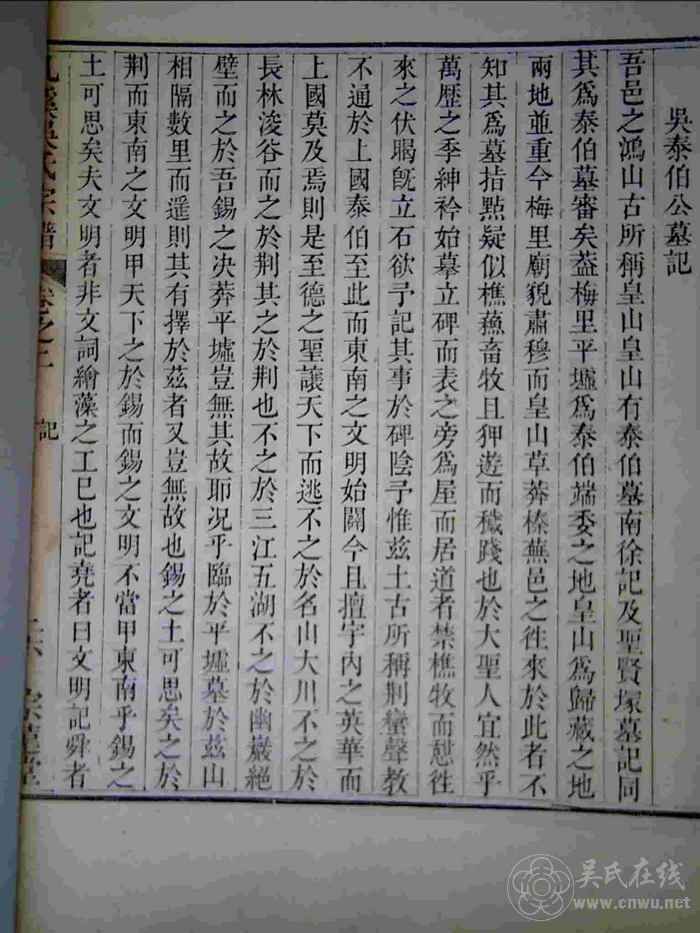 吳泰伯公墓記
吾邑之鴻山古所稱皇山皇山有泰伯墓南徐記及聖賢塚墓記同
其爲泰伯墓審矣葢梅里平墟爲泰伯端委之地皇山爲歸藏之地
兩地並重今梅里廟貌肅穆而皇山草莽榛蕪邑之徃來於此者不
知其爲墓指點疑似樵蘓畜牧且狎遊而穢踐也於大聖人宜然乎
萬歷之季紳衿始墓立碑而表之旁爲屋而居道者禁樵牧而憩徃
來之伏臈旣立石欲予記其事於碑陰予惟茲土古所稱荆蠻聲教
不通於上國泰伯至此而東南之文明始闢今且擅宇內之英華而
上國莫及焉則是至德之聖讓天下而逃不之於名山大川不之於
長林浚谷而之於荆其之於荆也不之於三江五湖不之於幽巖絕
壁而之於吾錫之泱莽平墟豈無其故耶况乎臨於平墟墓於茲山
相隔數里而遥則其有擇於茲者又豈無故也錫之土可思矣之於
荆而東南之文明甲天下之於錫而錫之文明不當甲東南乎錫之
土可思矣夫文明者非文詞繪藻之工巳也記堯者曰文明記舜者
吳氏宗譜
卷之二
記
吴氏在线
www.cnwu.net